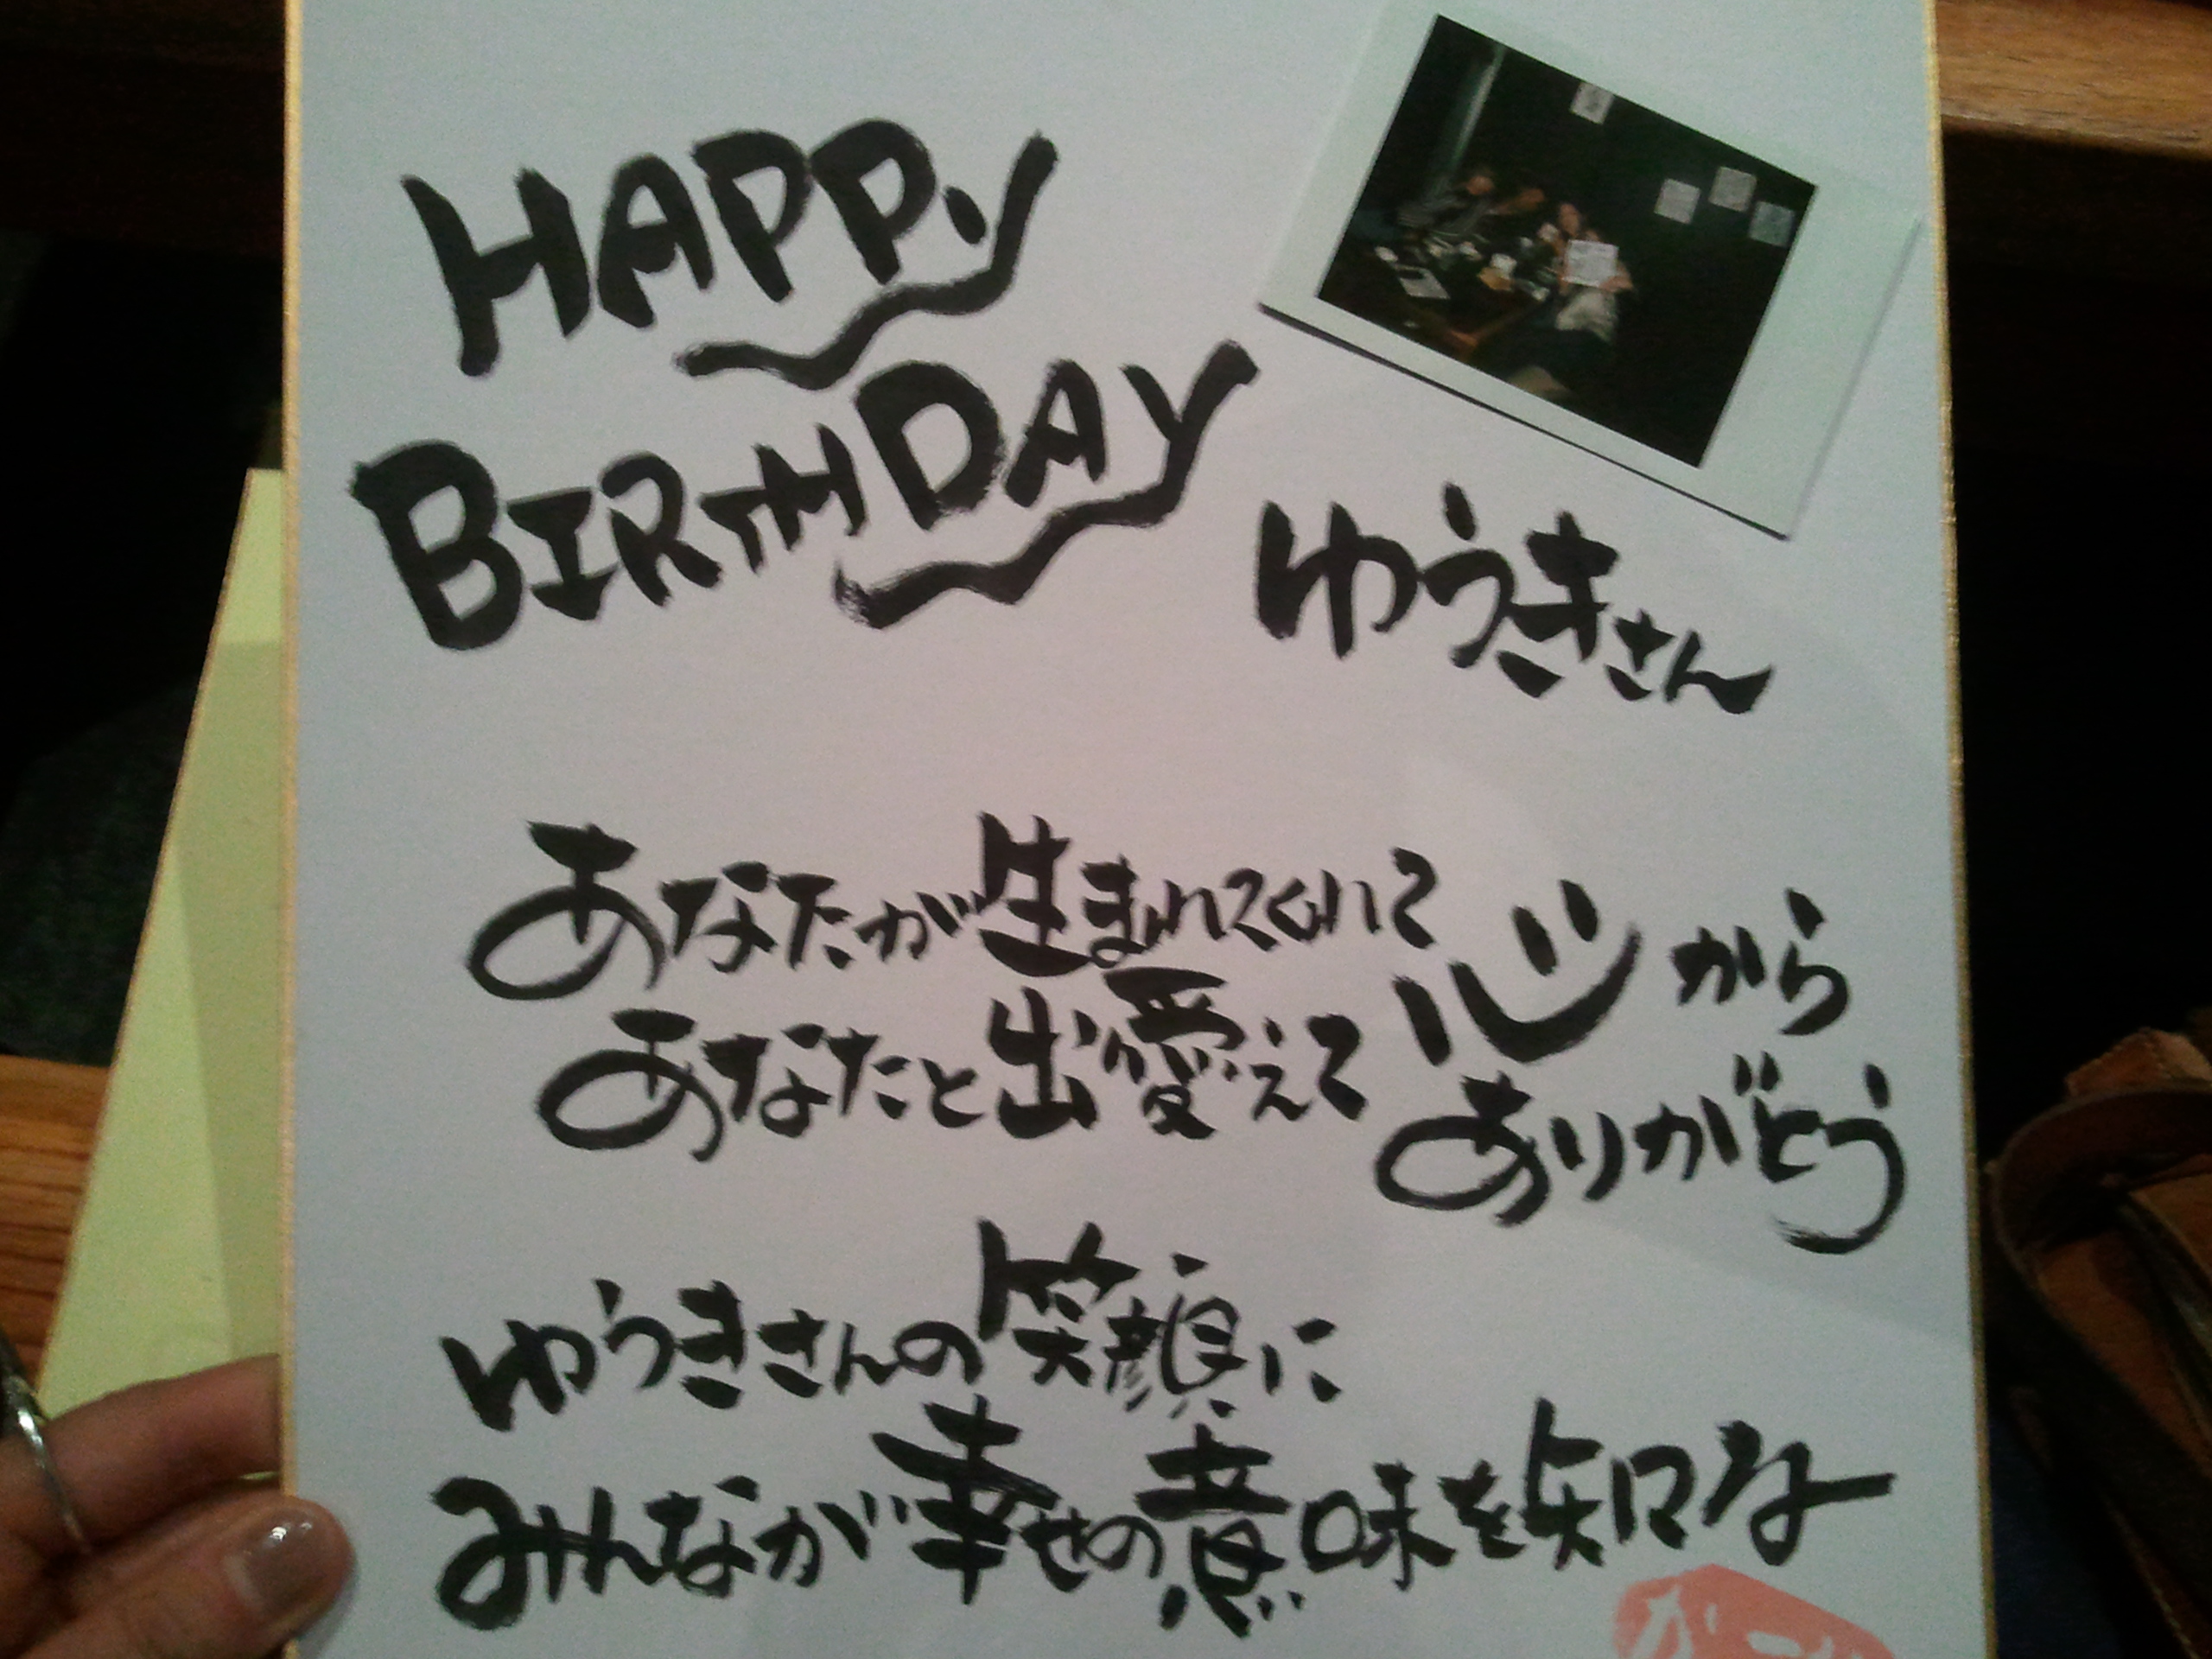 HAPPY
BIRTHDAY
ゆうきさん
あなたが生まれてくれて
あなたと出愛えて
心から
ありがとう
ゆうきさんの笑顔に
みんなが幸せの意味を知るな